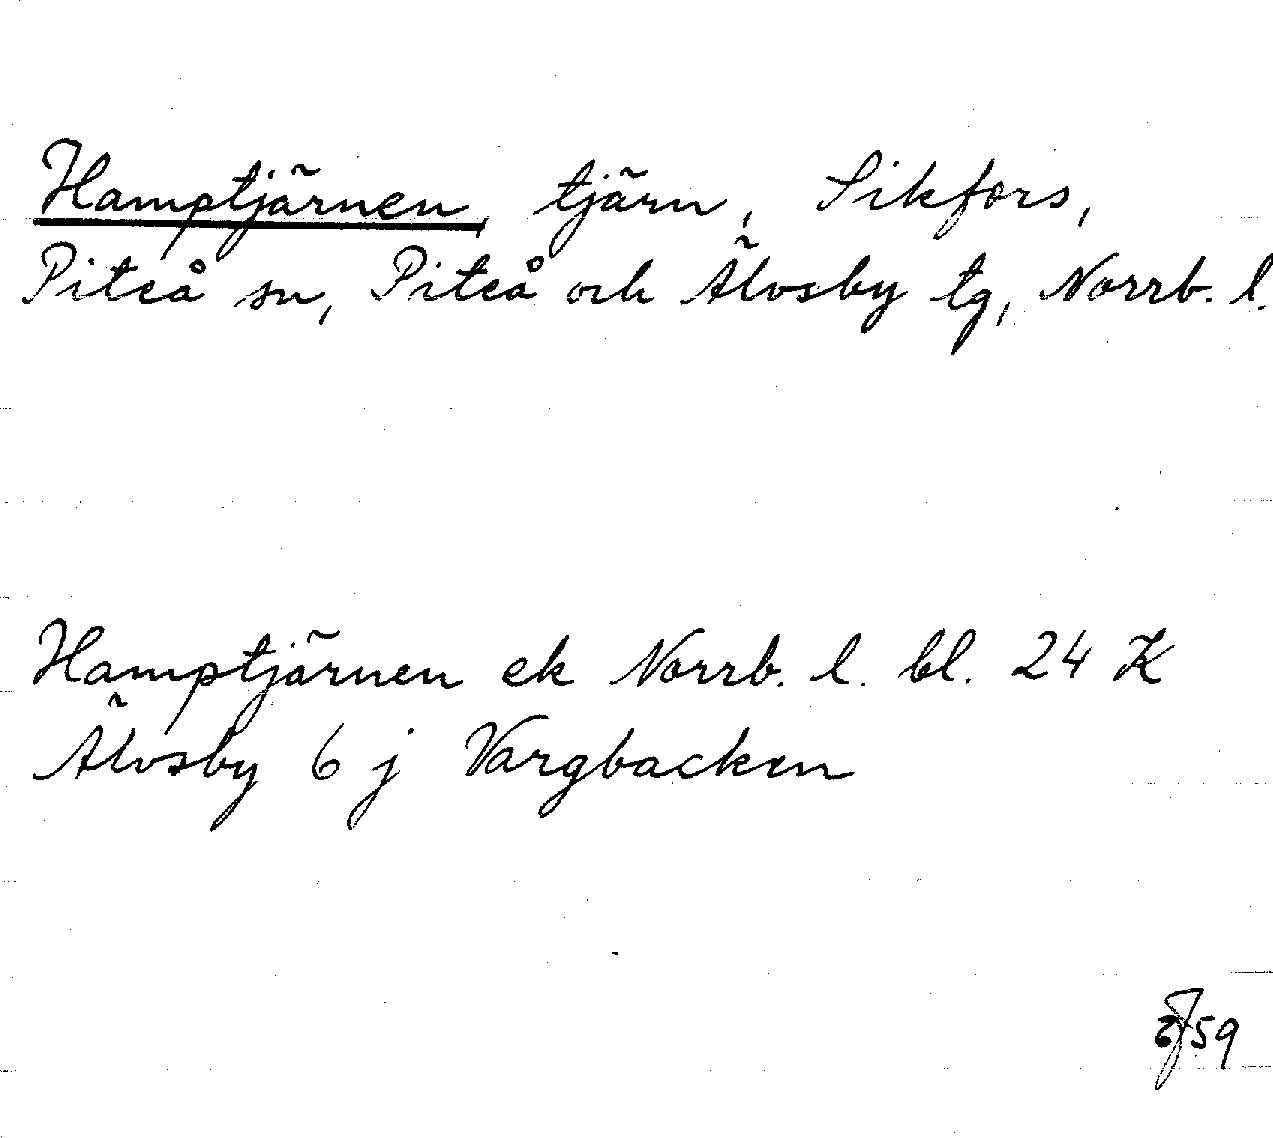 Hamptjärnen, tjärn, Sikfors,
Piteå sn, Piteå och Älvsby tg, Norrb. l.
Hamptjärnen ek Norrb. l. bl. 24 K
Älvsby 6 j Vargbacken
59